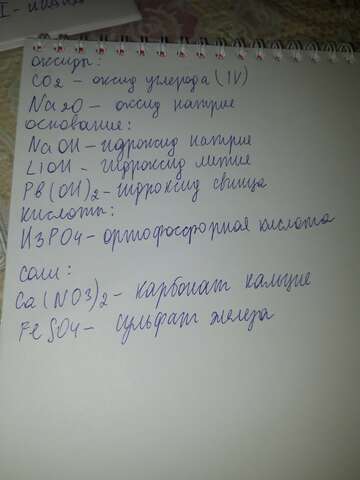 оксиды:
CO2 - оксид углерода (IV)
Na2O - оксид натрие
основание:
NaOH - гидроксид натрие
LiOH - гидроксид литие
PB(OH)2 - гидроксид свинца
кислоты:
H3PO4 - ортофосфорная кислота
соли:
Ca(NO3)2 - карбонат кальцие
FeSO4 - сульфат железа